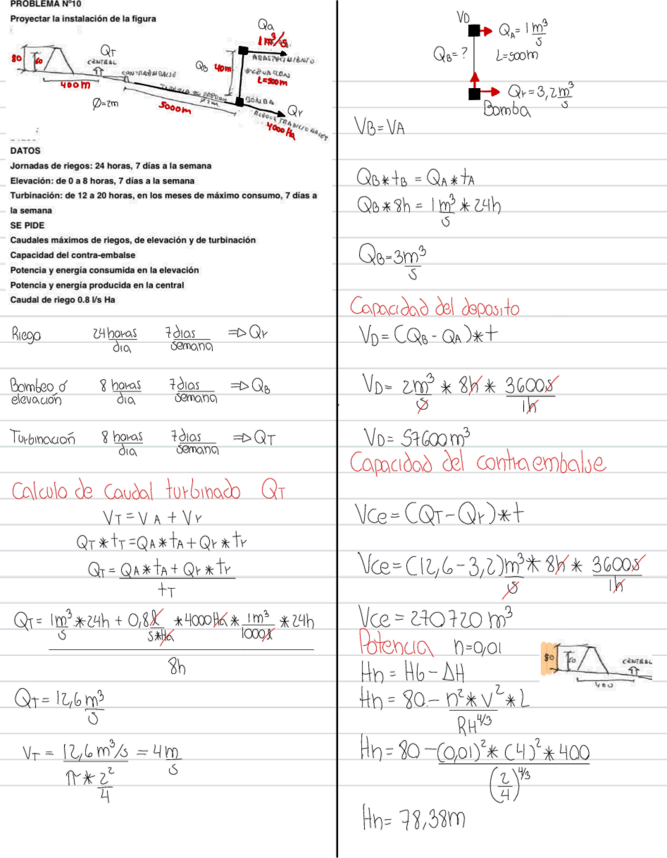 PROBLEMA Nº10
Proyectar la instalación de la figura
Qa
1 m³/s
80
60
QT
CENTRAL
400m
Ø=2m
CONTRAEMBALSE
5000m
QB
40m
ELEVACION
L=500m
BOMBA
Qr
4000 Ha
DATOS
Jornadas de riegos: 24 horas, 7 días a la semana
Elevación: de 0 a 8 horas, 7 días a la semana
Turbinación: de 12 a 20 horas, en los meses de máximo consumo, 7 días a
la semana
SE PIDE
Caudales máximos de riegos, de elevación y de turbinación
Capacidad del contra-embalse
Potencia y energía consumida en la elevación
Potencia y energía producida en la central
Caudal de riego 0.8 l/s Ha
Riego 24 horas/dia 7 dias/semana ⇒ Qr
Bombeo ó elevación 8 horas/dia 7 dias/semana ⇒ QB
Turbinación 8 horas/dia 7 dias/semana ⇒ QT
Calculo de caudal turbinado QT
VT = VA + Vr
QT * tT = QA * tA + Qr * tr
QT = QA * tA + Qr * tr / tT
QT = 1m³/s * 24h + 0,8 l/s*Ha * 4000Ha * 1m³/1000l * 24h / 8h
QT = 12,6 m³/s
VT = 12,6 m³/s / π * 2²/4 = 4 m/s
VD
QA = 1 m³/s
QB = ?
L=500m
Qr = 3,2 m³/s
Bomba
VB = VA
QB * tB = QA * tA
QB * 8h = 1 m³/s * 24h
QB = 3 m³/s
Capacidad del deposito
VD = (QB - QA) * t
VD = 2 m³/s * 8h * 3600s/1h
VD = 57600 m³
Capacidad del contraembalse
Vce = (QT - Qr) * t
Vce = (12,6 - 3,2) m³/s * 8h * 3600s/1h
Vce = 270720 m³
Potencia n=0,01
80
60
CENTRAL
400
Hn = HG - ΔH
Hn = 80 - n² * v² * L / RH^4/3
Hn = 80 - (0,01)² * (4)² * 400 / (2/4)^4/3
Hn = 78,38m